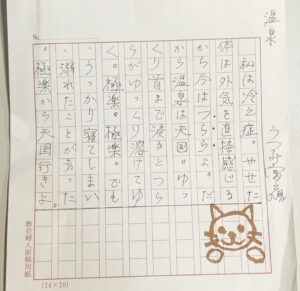 温泉
私は冷え症。やせた
体は外気を直接感じる
から今はつららよ。だ
から温泉は天国。ゆっ
くり首まで浸るとつら
らがゆっくり溶けてゆ
く。極楽。極楽。でも
、うっかり寝てしまい
、溺れたことがあった
。極楽から天国行きよ。
教会婦人原稿用紙
(14×16)
No.